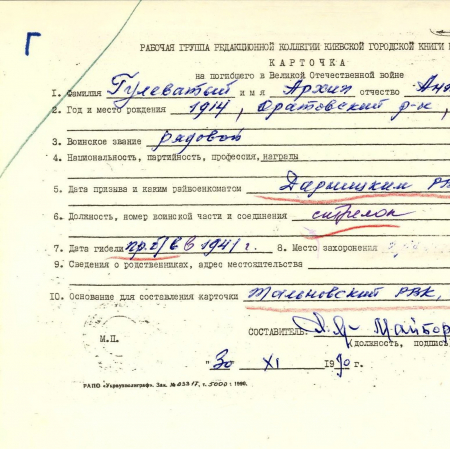 Г
РАБОЧАЯ ГРУППА РЕДАКЦИОННОЙ КОЛЛЕГИИ КИЕВСКОЙ ГОРОДСКОЙ КНИГИ
КАРТОЧКА
на погибшего в Великой Отечественной войне
1. Фамилия Гулеватый имя Архип отчество Ан
2. Год и место рождения 1914, Оратовский р-н,
3. Воинское звание рядовой
4. Национальность, партийность, профессия, награды
5. Дата призыва и каким райвоенкоматом Дарницким РВ
6. Должность, номер воинской части и соединения стрелок
7. Дата гибели пр.б/в в 1941 г. 8. Место захоронения
9. Сведения о родственниках, адрес местожительства
10. Основание для составления карточки Тальновский РВК,
СОСТАВИТЕЛЬ: Майбор
(должность, подпись
М.П.
"30 XI 1990 г.
РАПО «Укрвуполиграф». Зак. № 03217, т. 5000 : 1990.